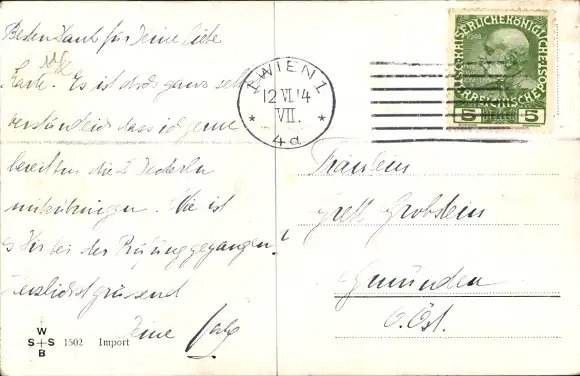 Besten Dank für Deine liebe
Karte. Es ist doch ganz selbst
verständlich dass ich gerne
bereit bin die
mitzubringen. Wie ist
es Dir bei der Prüfung gegangen?
Herzlichst grüssend
Deine
W
S S
B
1502 Import
1 WIEN 1
12 VI 14
VII.
* *
4d
1908
KAISERLICHE KÖNIGLICHE
ÖSTERREICHISCHE POST
5 HELLER 5
Fräulein
Grete Grobstein
Gmunden
O. Öst.